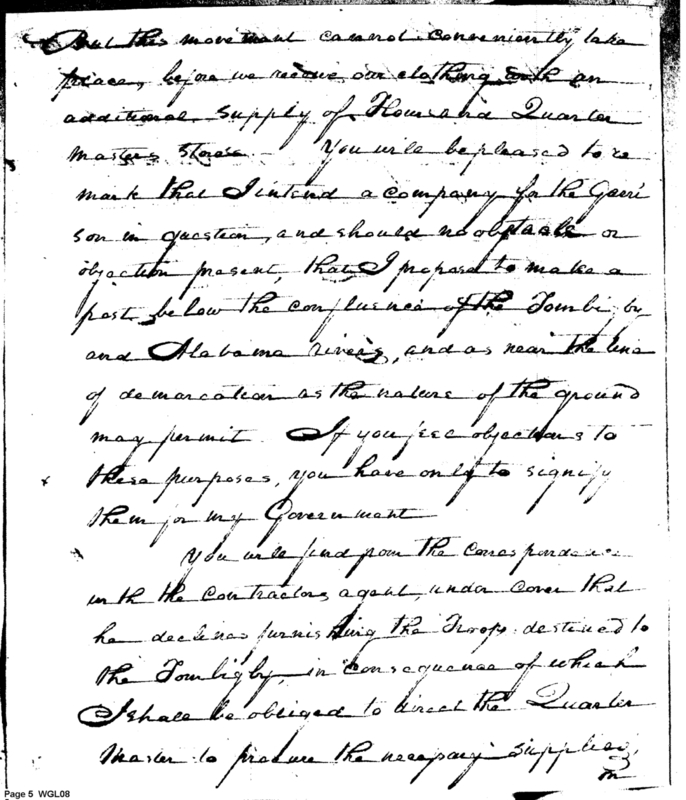 But this movement cannot conveniently take
place, before we receive our clothing with an
additional supply of Flour and Quarter
Masters Stores. - You will be pleased to re
mark that I intend a company for the Garri
son in question, and should no obstacle or
objection present, that I propose to make a
post below the confluence of the Tombi by
and Alabama rivers, and as near the line
of demarcation as the nature of the ground
may permit. If you see objections to
these purposes, you have only to signify
them for my Government
You will find from the correspondence
with the contractors agent, under cover that
he declines furnishing the Troops destined to
the Tombigby, in consequence of which
I shall be obliged to direct the Quarter
Master to procure the necessary supplies,
on
Page 5 WGL08